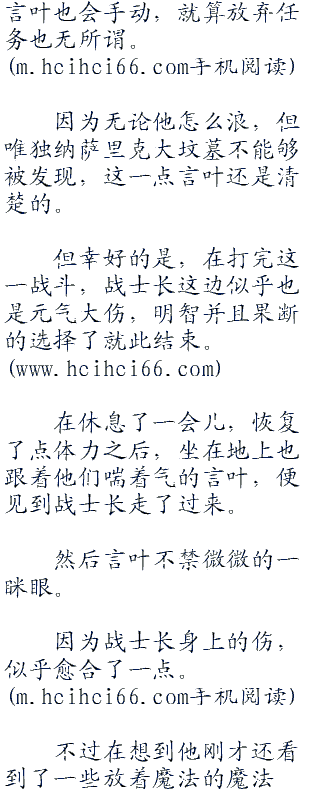 言叶也会手动，就算放弃任
务也无所谓。
(m.hcihci66.com手机阅读)
因为无论他怎么浪，但
唯独纳萨里克大坟墓不能够
被发现，这一点言叶还是清
楚的。
但幸好的是，在打完这
一战斗，战士长这边似乎也
是元气大伤，明智并且果断
的选择了就此结束。
(www.hcihci66.com)
在休息了一会儿，恢复
了点体力之后，坐在地上也
跟着他们喘着气的言叶，便
见到战士长走了过来。
然后言叶不禁微微的一
眯眼。
因为战士长身上的伤，
似乎愈合了一点。
(m.hcihci66.com手机阅读)
不过在想到他刚才还看
到了一些放着魔法的魔法